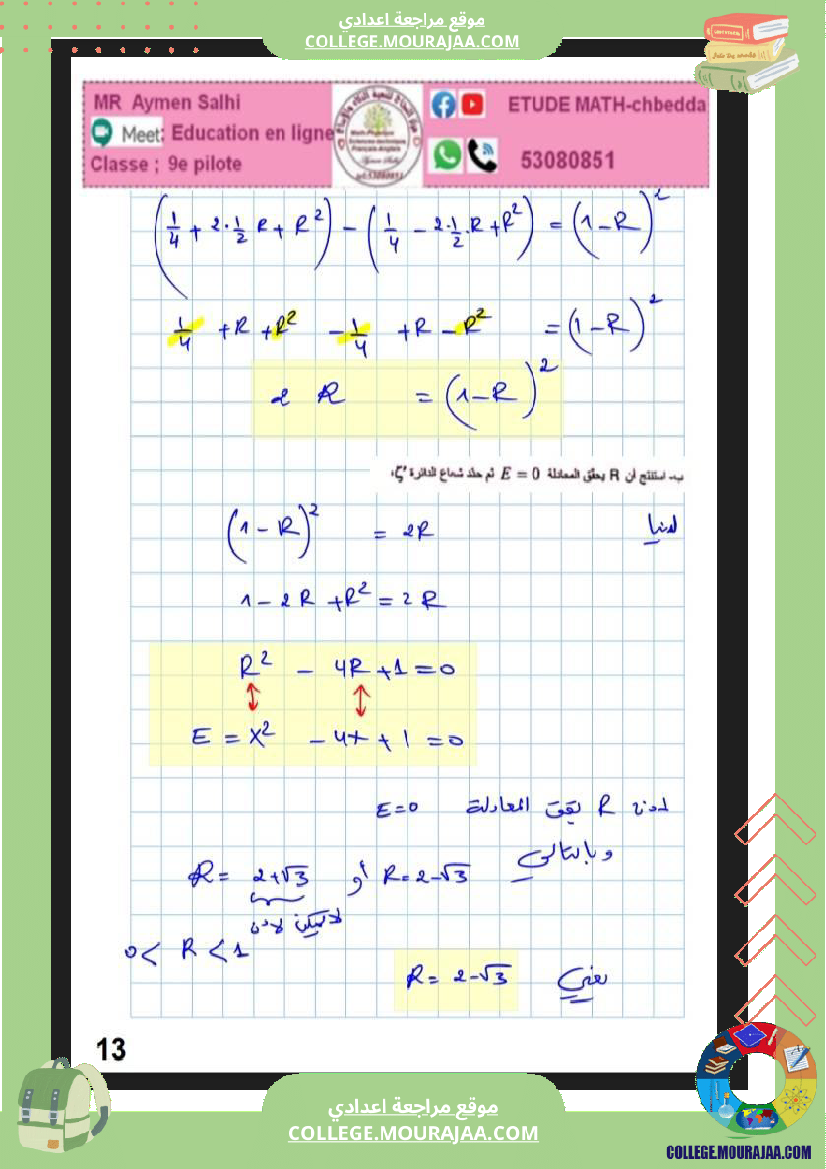 موقع مراجعة اعدادي
COLLEGE.MOURAJAA.COM
MR Aymen Salhi
ETUDE MATH-chbedda
Meet: Education en ligne
Classe ; 9e pilote
53080851
(1/4 + 2·1/2 R + R²) - (1/4 - 2·1/2·R + R²) = (1-R)²
1/4 + R + R² - 1/4 + R - R² = (1-R)²
2 R = (1-R)²
ب- استنتج أن R يحقق المعادلة E = 0 ثم حدد شعاع الدائرة ζ'،
لدينا
(1-R)² = 2R
1 - 2R + R² = 2R
R² - 4R + 1 = 0
E = x² - 4x + 1 = 0
اذن R يحقق المعادلة E=0
وبالتالي
R = 2-√3 أو R = 2+√3
لا يمكن لأن
0 < R < 1
يعني R = 2-√3
13
موقع مراجعة اعدادي
COLLEGE.MOURAJAA.COM
COLLEGE.MOURAJAA.COM